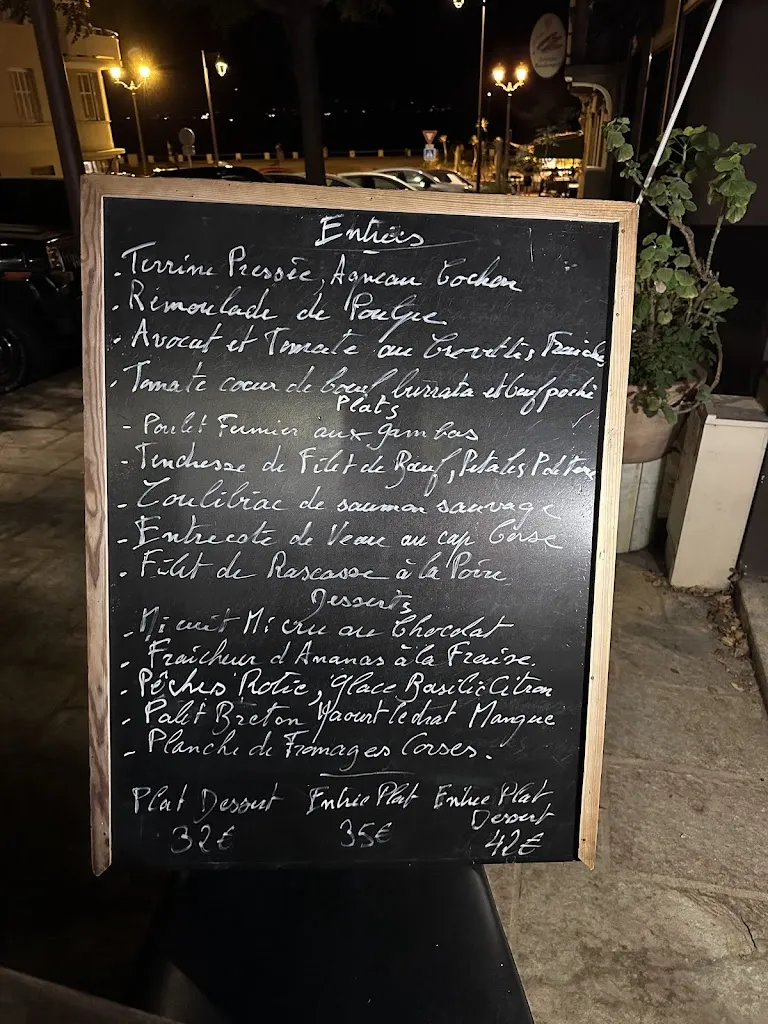 Entrées
. Terrine Pressée, Agneau Cochon
. Rémoulade de Poulpe
. Avocat et Tomate au Crevettes Fraiches
. Tomate coeur de boeuf burrata et Oeuf poché
Plats
- Poulet Fermier aux gambas
- Tendresse de Filet de Boeuf,
- Coulibiac de saumon sauvage
- Entrecote de Veau au cap Corse
. Filet de Rascasse à la Poire
Desserts
- Mi cuit Mi cru au Chocolat
- Fraicheur d'Ananas à la Fraise.
- Pêches Rotie, glace Basilic Citron
- Palet Breton Yaourt Cédrat Mangue
- Planche de Fromages Corses.
Plat Dessert Entrée Plat Entrée Plat
Dessert
32€ 35€ 42€